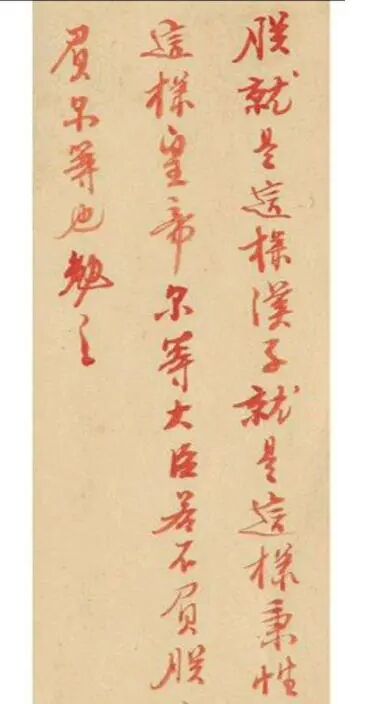 朕就是這樣漢子就是這樣秉性
這樣皇帝尔等大臣若不負朕
負尔等也勉之